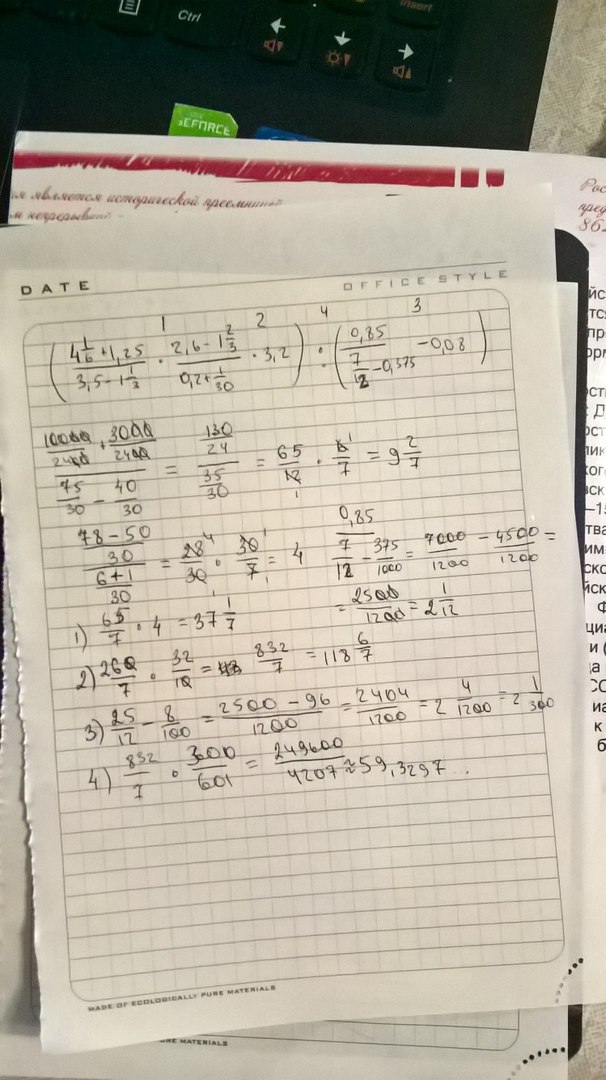 Ctrl
Insert
GEFORCE
ия является исторической преемницей
м непрерывной
DATE
OFFICE STYLE
1 2 4 3
((4 1/6 + 1,25)/(3,5 - 1 1/3) · (2,6 - 1 2/3)/(0,2 + 1/30) · 3,2) : (0,85/(7/12 - 0,375) - 0,08)
(10000/2400 + 3000/2400)/(75/30 - 40/30) = (130/24)/(35/30) = 65/12 · 6/7 = 9 2/7
((78 - 50)/30)/((6 + 1)/30) = 28/30 · 30/7 = 4
0,85/(7/12 - 375/1000) = 7000/1200 - 4500/1200 =
= 2500/1200 = 2 1/12
1) 65/7 · 4 = 37 1/7
2) 260/7 · 32/10 = 832/7 = 118 6/7
3) 25/12 - 8/100 = (2500 - 96)/1200 = 2404/1200 = 2 4/1200 = 2 1/300
4) 832/7 · 300/601 = 249600/4207 ≈ 59,3297...
MADE OF ECOLOGICALLY PURE MATERIALS
RE MATERIALS